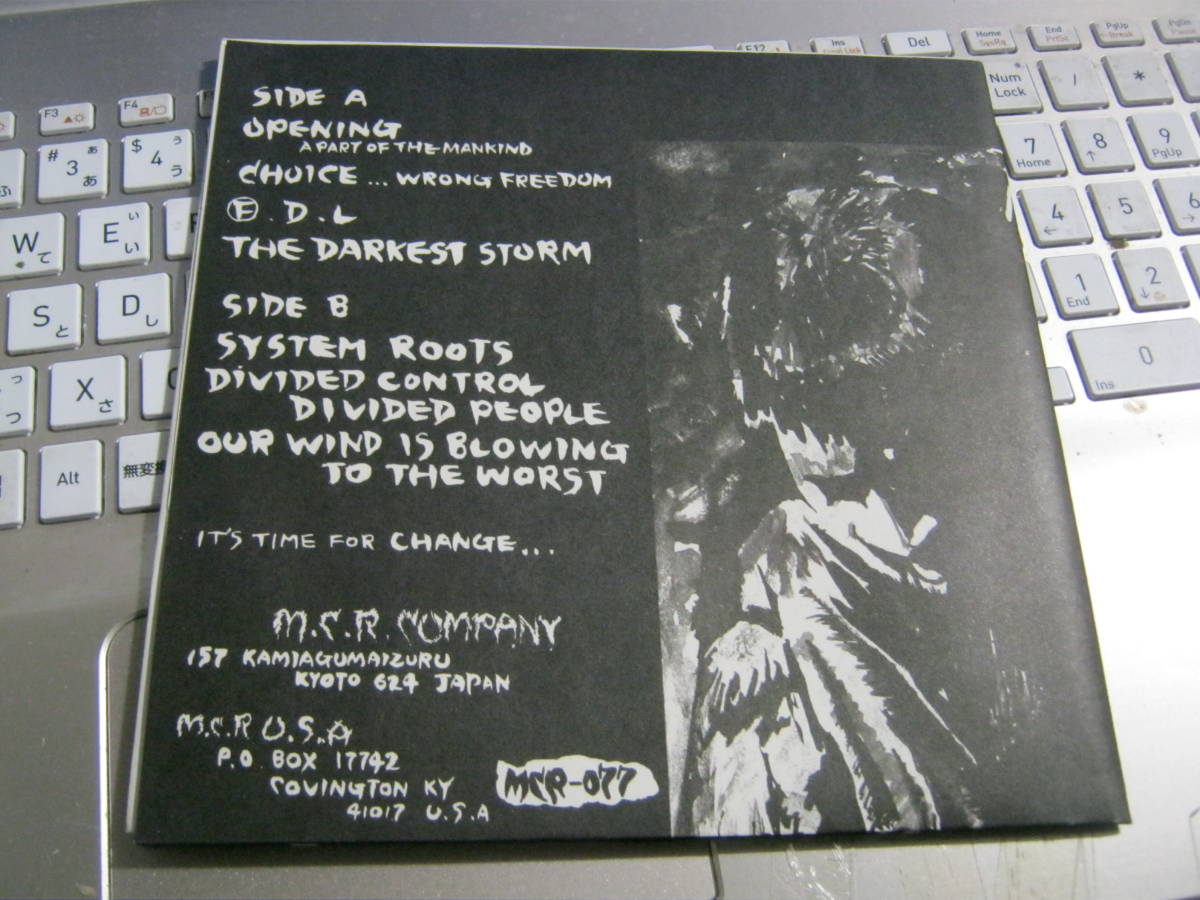 SIDE A
OPENING
A PART OF THE MANKIND
CHOICE ... WRONG FREEDOM
Ⓔ.D.L
THE DARKEST STORM
SIDE B
SYSTEM ROOTS
DIVIDED CONTROL
DIVIDED PEOPLE
OUR WIND IS BLOWING
TO THE WORST
IT'S TIME FOR CHANGE...
M.C.R. COMPANY
157 KAMIAGUMAIZURU
KYOTO 624 JAPAN
M.C.R U.S.A
P.O BOX 17742
COVINGTON KY
41017 U.S.A
MCR-077
F3
F4
F12
Ins
Del
Home
SysRq
End
PrtSc
PgUp
Break
PgDn
Pause
# 3 ぁ あ
$ 4 ぅ う
W て
E ぃ い
S と
D し
X さ
っ つ
Alt
無変換
Num Lock
/
*
7 Home
8 ↑
9 PgUp
4 ←
5
6 →
1 End
2 ↓
0 Ins